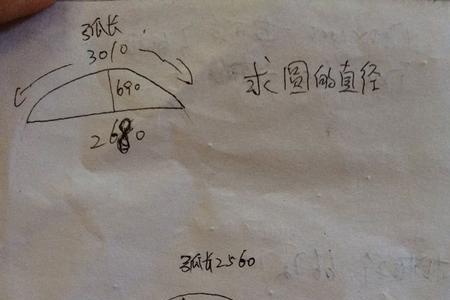 弧长
3010
690
2680
求圆的直径
弧长2560